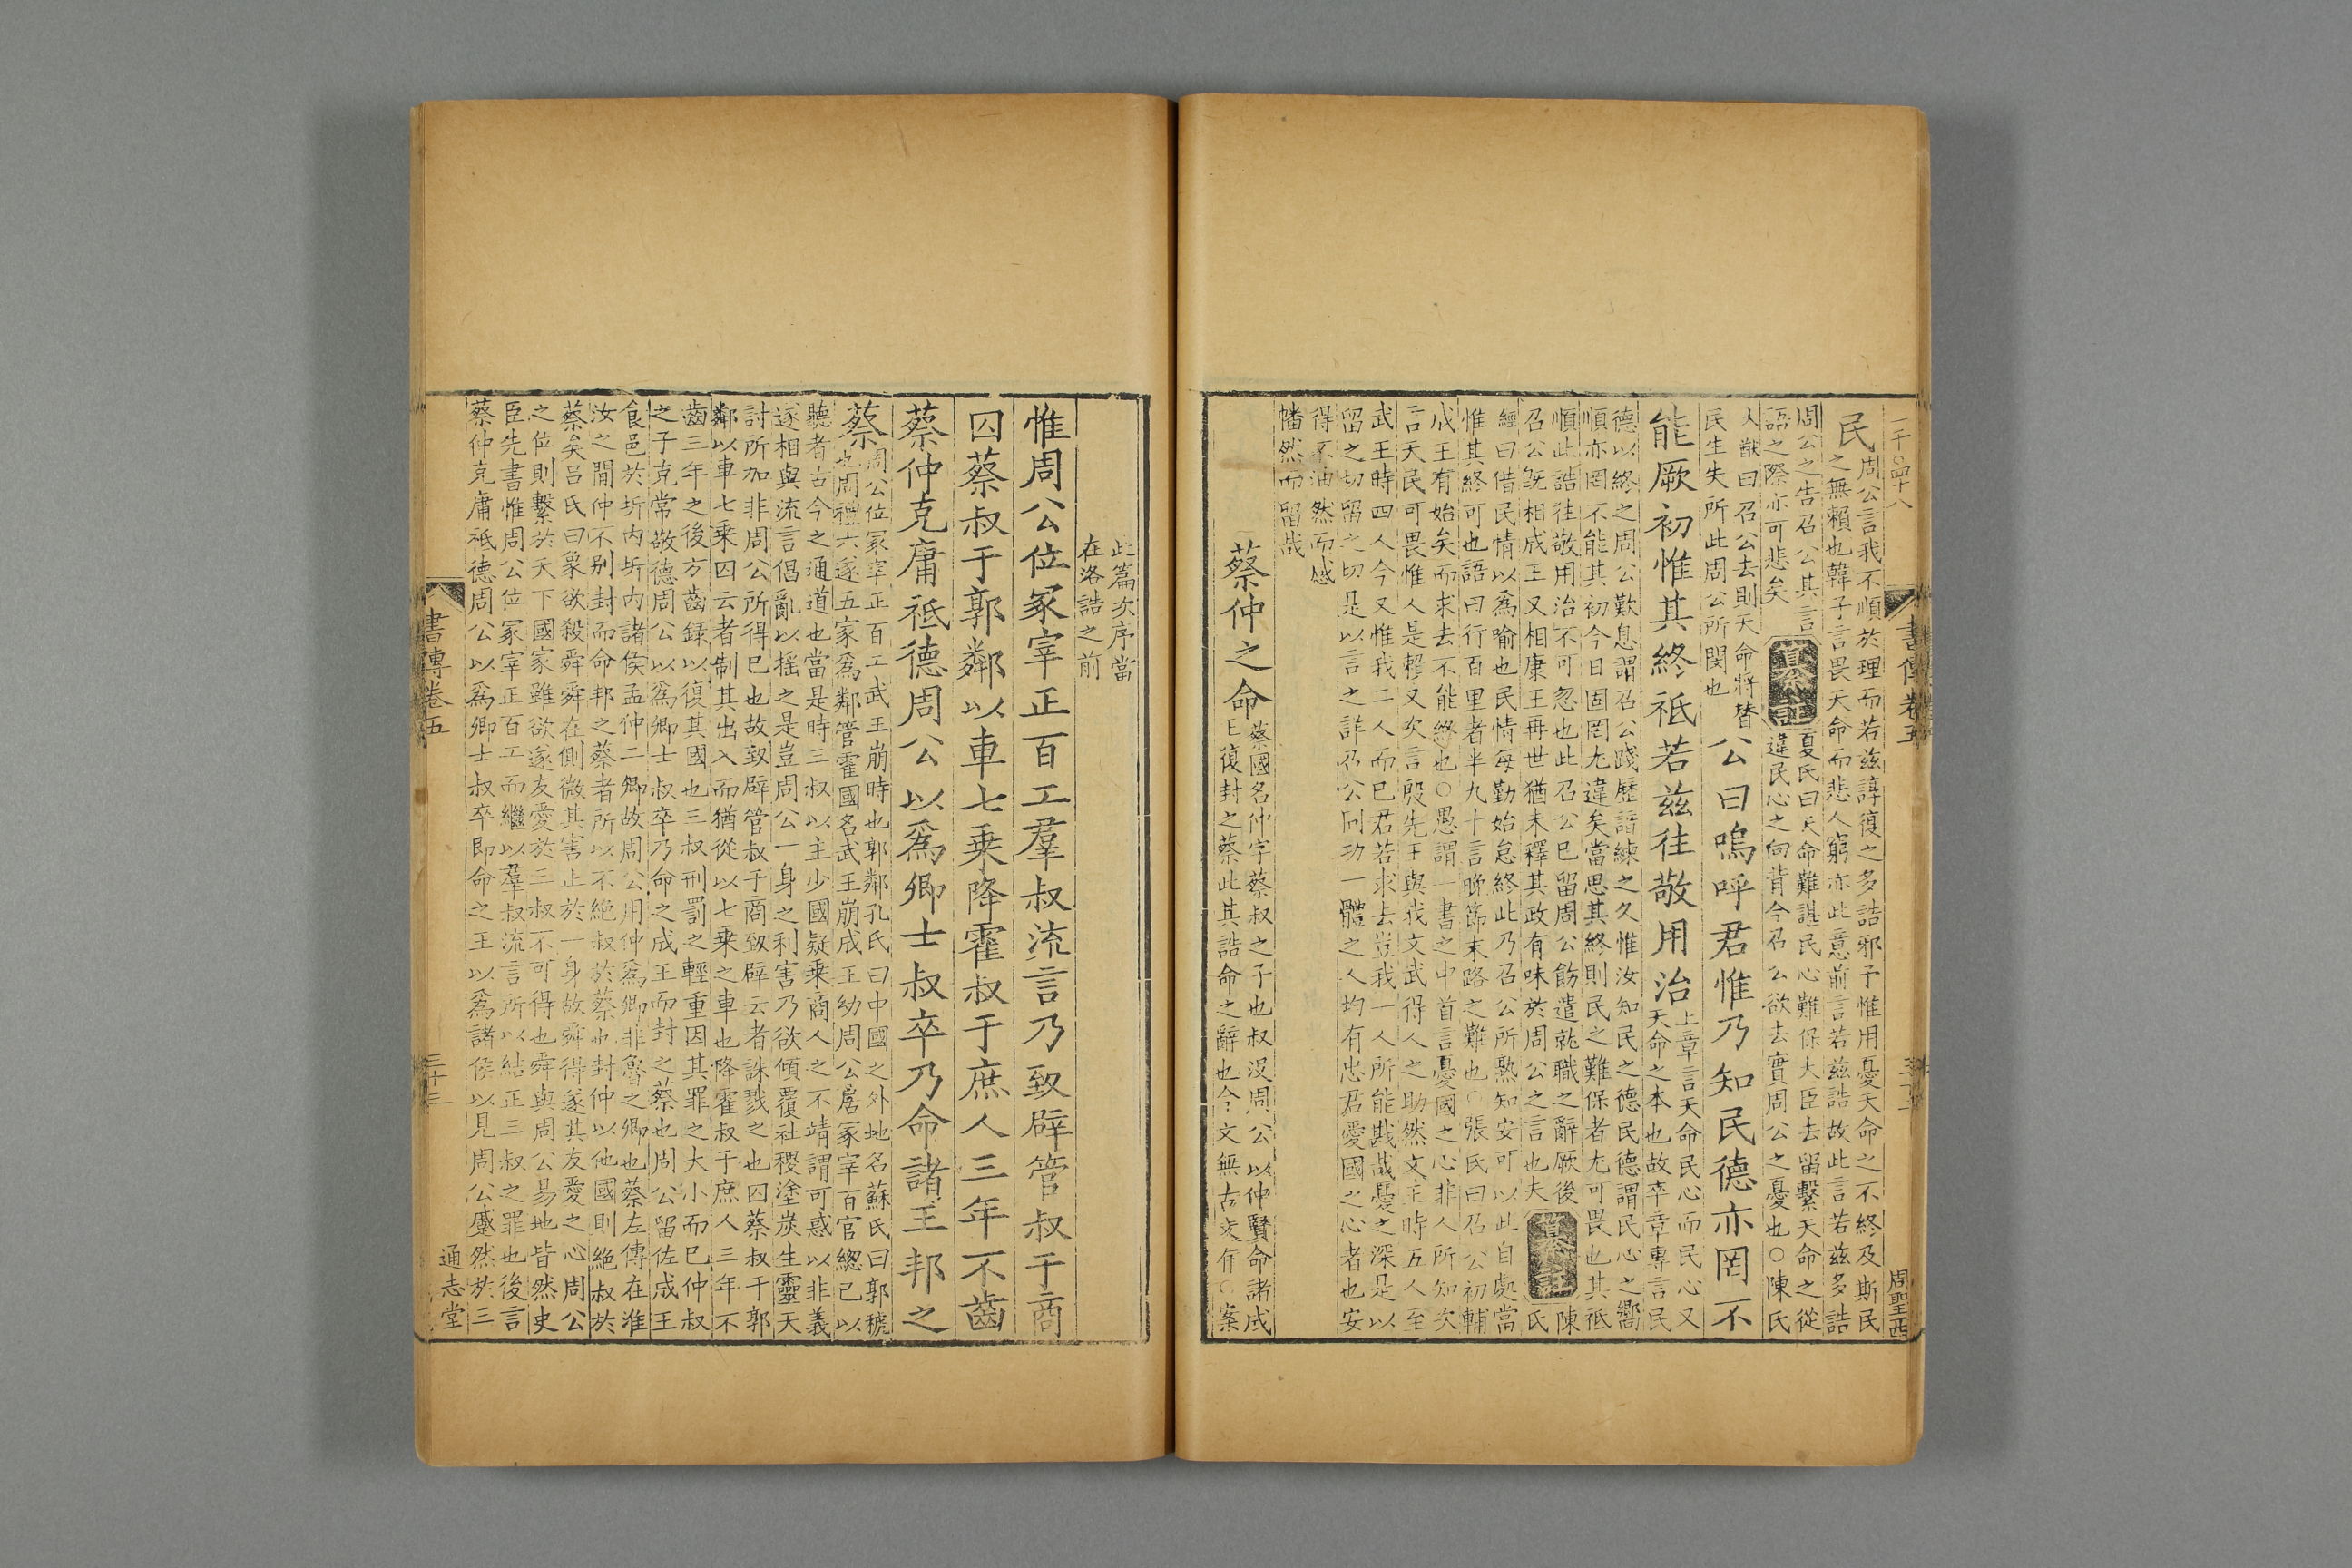 書傳卷五
周聖西
民周公言我不順於理而若兹諄復之多誥邪予惟用憂天命之不終及斯民
之無賴也韓子言畏天命而悲人窮亦此意前言若兹誥故此言若兹多誥
周公之告召公其言
語之際亦可悲矣
纂註
夏氏曰天命難諶民心難保大臣去留繫天命之從
違民心之向背今召公欲去實周公之憂也○陳氏
大猷曰召公去則天命將替
民生失所此周公所閔也
公曰嗚呼君惟乃知民德亦罔不
能厥初惟其終祗若兹往敬用治
上章言天命民心而民心又
天命之本也故卒章專言民
德以終之周公歎息謂召公踐歷諳練之久惟汝知民之德民德謂民心之嚮
順亦罔不能其初今日固罔尤違矣當思其終則民之難保者尤可畏也其祗
順此誥往敬用治不可忽也此召公已留周公飭遣就職之辭厥後
召公旣相成王又相康王再世猶未釋其政有味於周公之言也夫
纂註
陳氏
經曰借民情以爲喻也民情每勤始怠終此乃召公所熟知安可以此自處當
惟其終可也語曰行百里者半九十言晩節末路之難也○張氏曰召公初輔
成王有始矣而求去不能終也○愚謂一書之中首言憂國之心非人所知次
言天民可畏惟人是賴又次言殷先王與我文武得人之助然文王時五人至
武王時四人今又惟我二人而已君若求去豈我一人所能戡哉憂之深是以
留之切留之切是以言之詳召公同功一體之人均有忠君愛國之心者也安
得不油然而感
幡然而留哉
蔡仲之命
蔡國名仲字蔡叔之子也叔没周公以仲賢命諸成
王復封之蔡此其誥命之辭也今文無古文有○案
此篇次序當
在洛誥之前
惟周公位冢宰正百工羣叔流言乃致辟管叔于商
囚蔡叔于郭鄰以車七乘降霍叔于庶人三年不齒
蔡仲克庸祗德周公以爲卿士叔卒乃命諸王邦之
蔡周公位冢宰正百工武王崩時也郭鄰孔氏曰中國之外地名蘇氏曰郭虢
也周禮六遂五家爲鄰管霍國名武王崩成王幼周公居冢宰百官總己以
聽者古今之通道也當是時三叔以主少國疑乘商人之不靖謂可惑以非義
遂相與流言倡亂以搖之是豈周公一身之利害乃欲傾覆社稷塗炭生靈天
討所加非周公所得已也故致辟管叔于商致辟云者誅戮之也囚蔡叔于郭
鄰以車七乘囚云者制其出入而猶從以七乘之車也降霍叔于庶人三年不
齒三年之後方齒録以復其國也三叔刑罰之輕重因其罪之大小而已仲叔
之子克常敬德周公以爲卿士叔卒乃命之成王而封之蔡也周公留佐成王
食邑於圻内圻内諸侯孟仲二卿故周公用仲爲卿非魯之卿也蔡左傳在淮
汝之閒仲不別封而命邦之蔡者所以不絶叔於蔡也封仲以他國則絶叔於
蔡矣吕氏曰象欲殺舜舜在側微其害止於一身故舜得遂其友愛之心周公
之位則繫於天下國家雖欲遂友愛於三叔不可得也舜與周公易地皆然史
臣先書惟周公位冢宰正百工而繼以羣叔流言所以結正三叔之罪也後言
蔡仲克庸祗德周公以爲卿士叔卒即命之王以爲諸侯以見周公蹙然於三
書傳卷五
三十三
通志堂